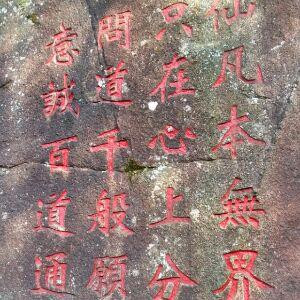 仙凡本無界
只在心上分
問道千般願
意誠百道通